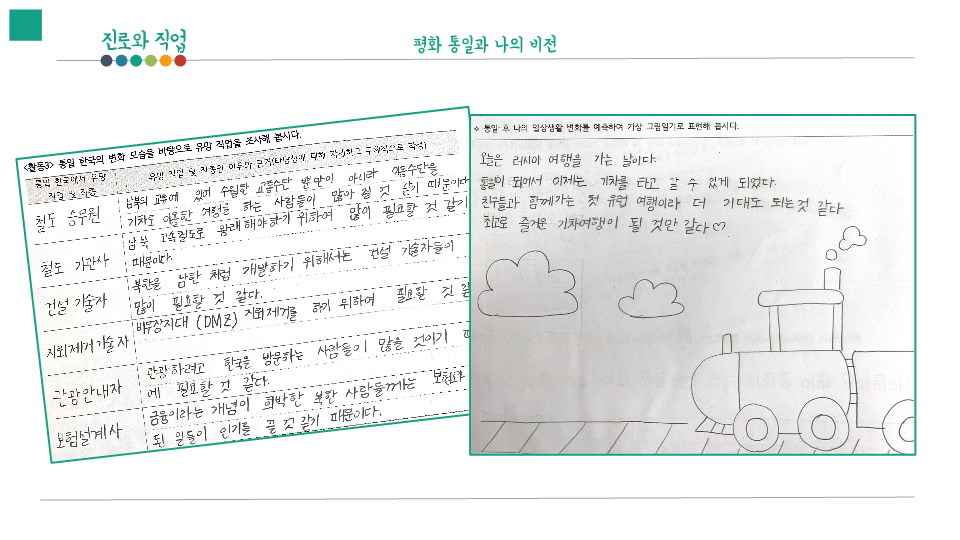 진로와 직업
평화 통일과 나의 비전
<활동3> 통일 한국의 변화 모습을 바탕으로 유망 직업을 조사해 봅시다.
통일 한국에서 유망
직업 및 직종
유망 직업 및 직종인 이유와 근거(타당성에 대해 자세하고 구체적으로 작성)
철도 승무원
남북의 교류에 있어 수월한 교통수단 발달이 아니라 이동수단을
기차로 이용한 여행을 하는 사람들이 많아 질 것 같기 때문이다
철도 기관사
남북 고속철도로 왕래해야하기 위하여 많이 필요할 것 같기
때문이다.
건설 기술자
북한을 남한 처럼 개발하기 위해서는 건설 기술자들이
많이 필요할 것 같다.
지뢰제거기술자
비무장지대 (DMZ) 지뢰제거를 하기 위하여 필요할 것 같
관광안내자
관광하려고 한국을 방문하는 사람들이 많을 것이기 때
에 필요할 것 같다.
보험설계사
금융이라는 개념이 희박한 북한 사람들께는 보험과
된 일들이 인기를 끌 것 같기 때문이다.
※ 통일 후 나의 일상생활 변화를 예측하여 가상 그림일기로 표현해 봅시다.
오늘은 러시아 여행을 가는 날이다.
통일이 되어서 이제는 기차를 타고 갈 수 있게 되었다.
친구들과 함께가는 첫 유럽 여행이라 더 기대도 되는것 같다
최고로 즐거운 기차여행이 될 것만 같다♡